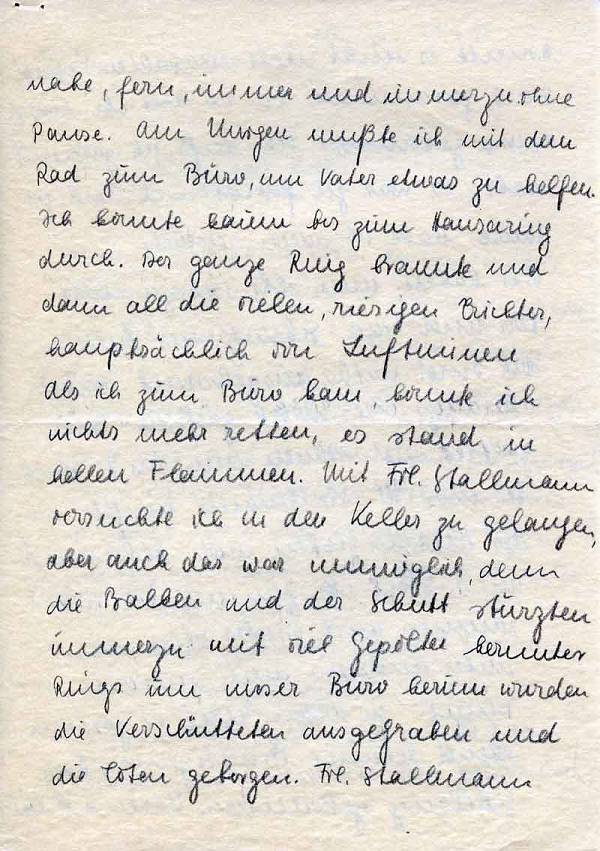 nahe, fern, immer und immerzu ohne
Pause. Am Morgen mußte ich mit dem
Rad zum Büro, um Vater etwas zu helfen.
Ich konnte kaum bis zum Hansaring
durch. Der ganze Ring brannte und
dann all die vielen, riesigen Trichter,
hauptsächlich von Luftminen
Als ich zum Büro kam, konnte ich
nichts mehr retten, es stand in
hellen Flammen. Mit Frl. Stallmann
versuchte ich in den Keller zu gelangen,
aber auch das war unmöglich, denn
die Balken und der Schutt stürzten
immerzu mit viel Gepolter herunter
Rings um unser Büro herum wurden
die Verschütteten ausgegraben und
die Toten geborgen. Frl. Stallmann